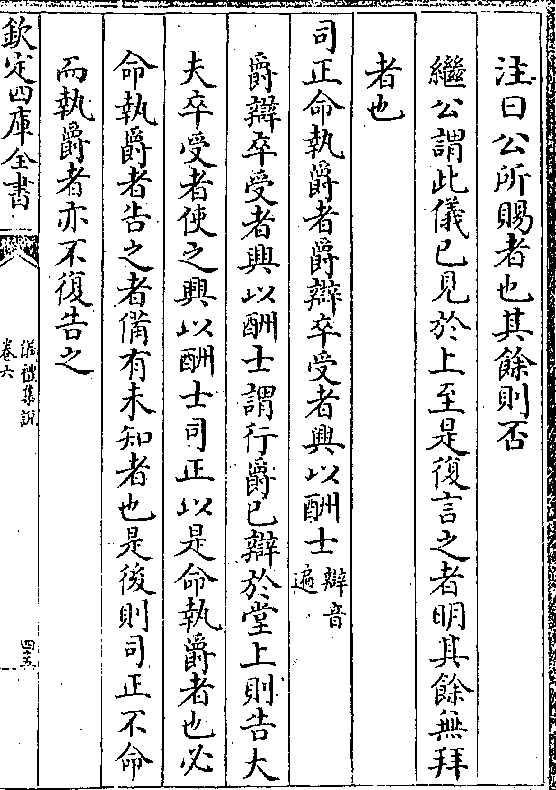 注曰公所賜者也其餘則否
繼公謂此儀已見於上至是復言之者明其餘無拜
者也
司正命執爵者爵辯卒受者興以酬士辯音遍
爵辯卒受者興以酬士謂行爵已辯於堂上則告大
夫卒受者使之興以酬士司正以是命執爵者也必
命執爵者告之者備有未知者也是後則司正不命
而執爵者亦不復告之
欽定四庫全書
儀禮集說
卷六
四五